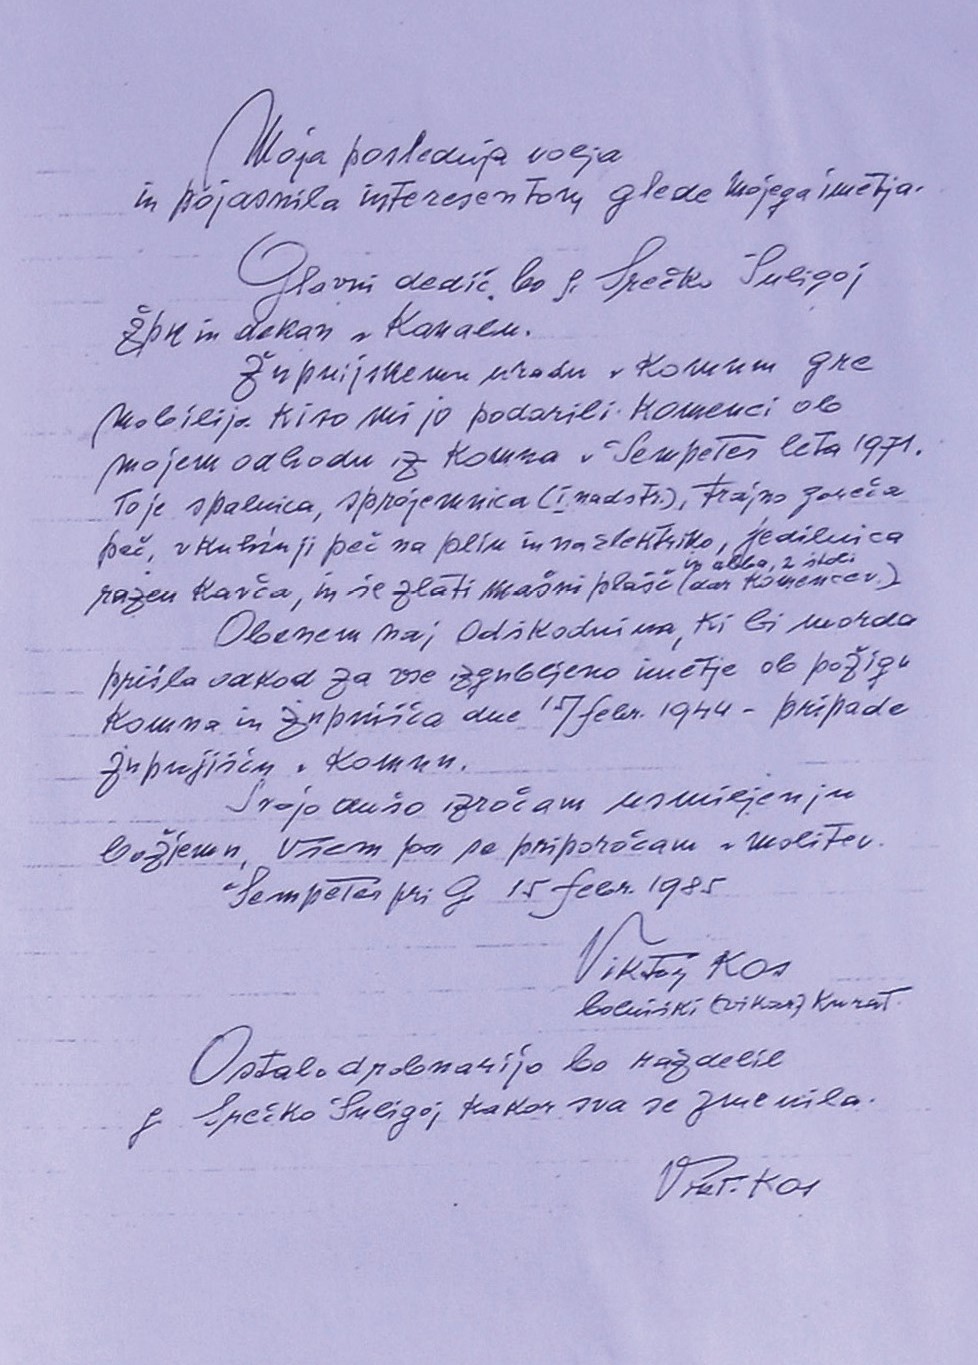 Moja poslednja volja
in pojasnila interesentom glede mojega imetja.
Glavni dedič bo g. Srečko Šuligoj
žpk in dekan v Kanalu.
Župnijskemu uradu v Komnu gre
mobilija ki so mi jo podarili Komenci ob
mojem odhodu iz Komna v Šempeter leta 1971.
To je spalnica, sprejemnica (I. nadstr.), trajno goreča
peč, v kuhinji peč na plin in na elektriko, jedilnica
in alba, 2 štoli
razen kavča, in še zlati mašni plašč (dar Komencev.)
Obenem naj odškodnina, ki bi morda
prišla odkod za vse izgubljeno imetje ob požigu
Komna in župnišča dne 15/febr. 1944 - pripade
župnijišču v Komnu.
Svojo dušo izročam usmiljenju
božjemu, vsem pa se priporočam v molitev.
Šempeter pri G 15 febr. 1985
Viktor Kos
bolniški (vikar) kurat.
Ostalo drobnarijo bo razdelil
g Srečko Šuligoj kakor sva se zmenila.
Vikt. Kos